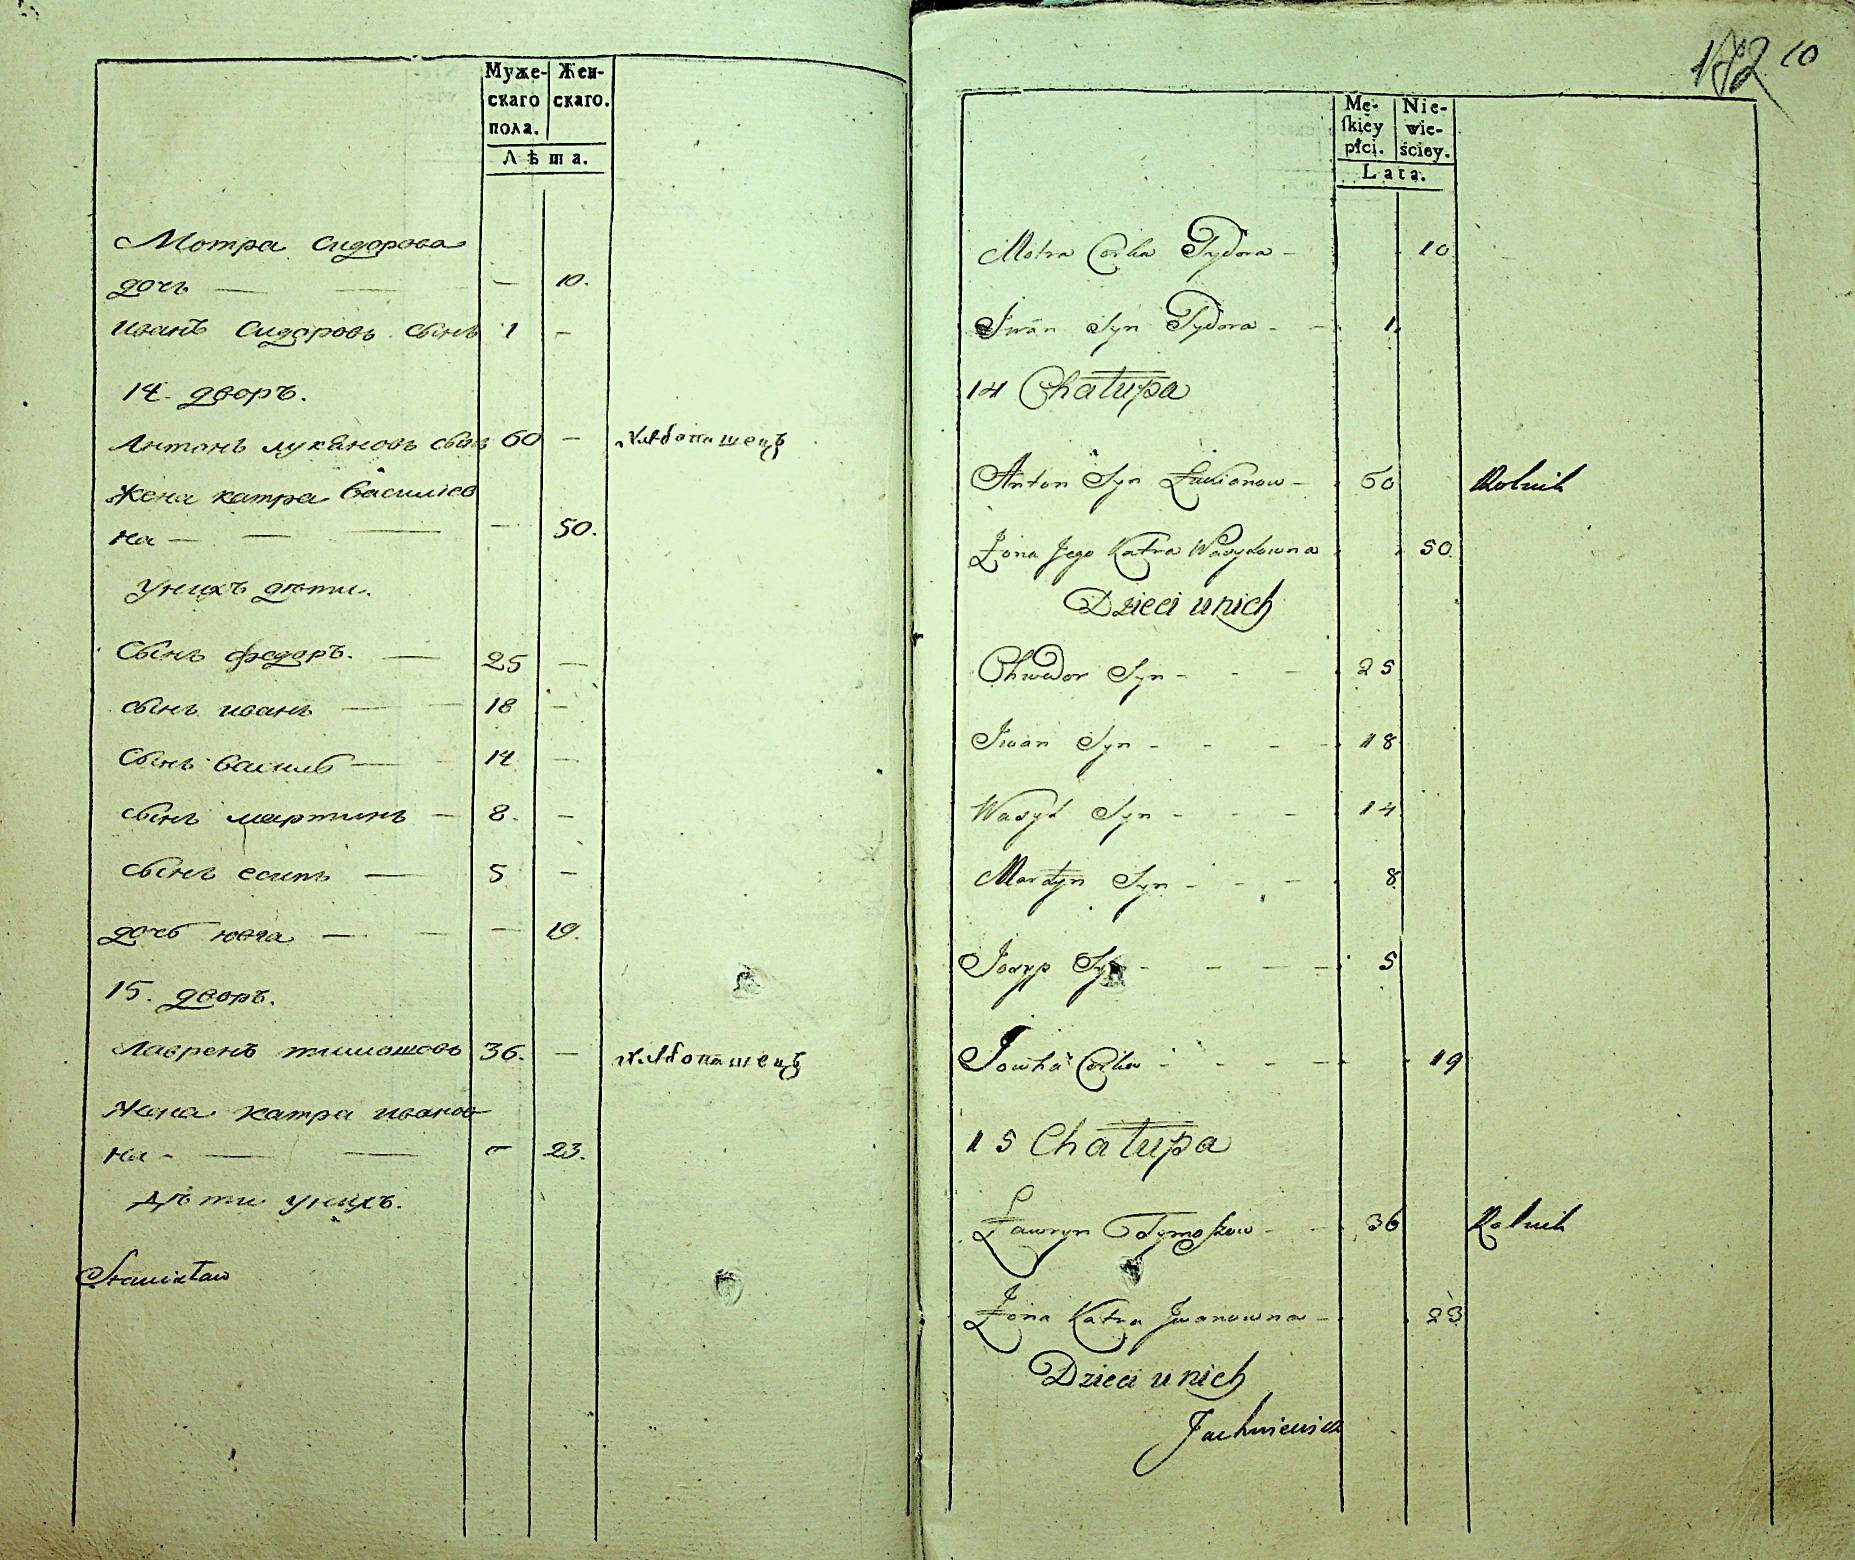 Муже-
скаго
пола.
Жен-
скаго.
Лѣта.
Мотра Сидорова
дочь — — — 10.
иванъ Сидоровъ сынъ 1 —
14. дворъ.
Антонъ лукяновъ сынъ 60 — хлѣбопашецъ
жена катра василев
на — — — — 50.
унихъ дѣти.
Сынъ федоръ. — 25 —
сынъ иванъ — — 18 —
Сынъ василь — 14 —
сынъ мартинъ — 8. —
сынъ есипъ — 5 —
дочь югга — — — 19.
15. дворъ.
Лавренъ тимошовъ 36. — хлѣбопашецъ
жена катра иванов
на - — — — 23.
Дѣти унихъ.
Stanisław
172 10
Mę-
skiéy
płci.
Nie-
wie-
ściey.
Lata.
Motra Corka Sydora - 10
Iwan Syn Sydora - - 1
14 Chałupa
Anton Syn Łukianow - 60 Rolnik
Żona Jego Katra Wasylowna 50.
Dzieci u nich
Chwedor Syn - - - 25
Iwan Syn - - - - 18
Wasyl Syn - - - 14
Martyn Syn - - - 8
Josyp Syn - - - - 5
Jowha Corka - - - - 19
15 Chałupa
Ławryn Tymoszow - - 36 Rolnik
Żona Katra Iwanowna - 23
Dzieci u nich
Jachniewicz